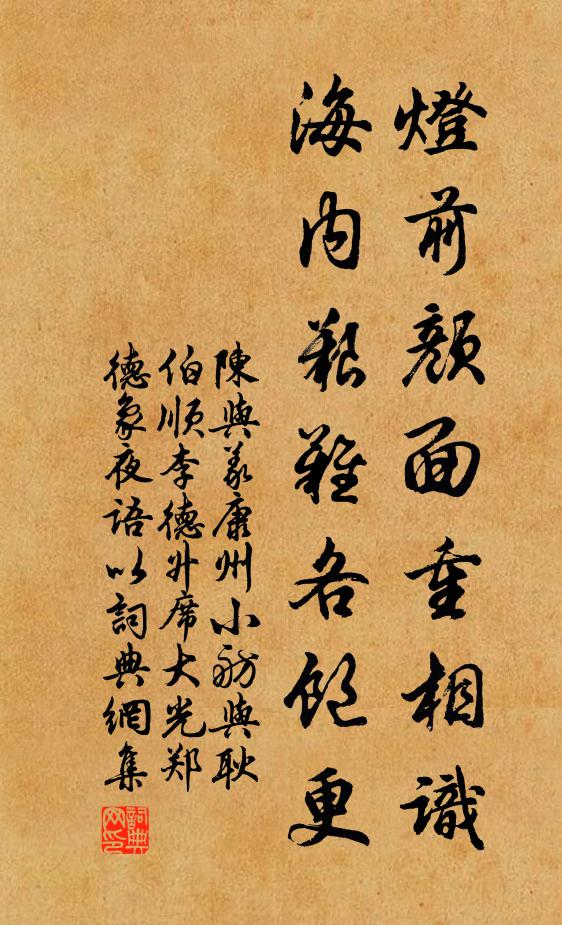 燈前顔面重相識
海内艱難各飽更
陳與義康州小舫與耿
伯順李德升席大光郑
德象夜語以詞典網集
詞典
网印